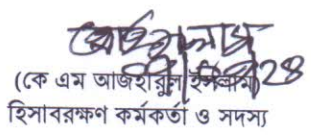 (কে এম আজহারুল ইসলাম)
হিসাবরক্ষণ কর্মকর্তা ও সদস্য